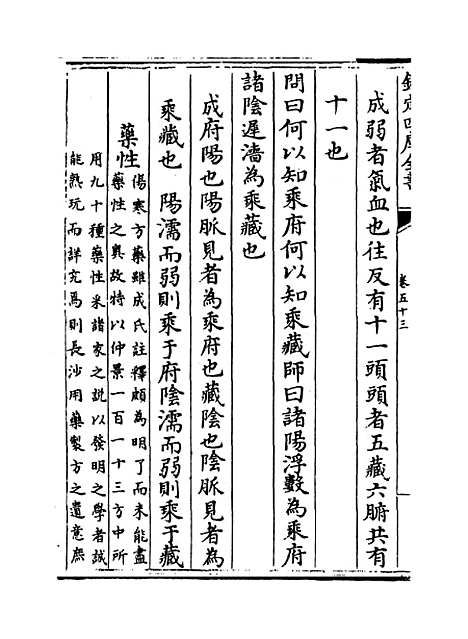 欽定四庫全書
卷五十三
成弱者氣血也往反有十一頭頭者五藏六腑共有
十一也
問曰何以知乘府何以知乘藏師曰諸陽浮數為乘府
諸陰遲濇為乘藏也
成府陽也陽脈見者為乘府也藏陰也陰脈見者為
乘藏也　陽濡而弱則乘于府陰濡而弱則乘于藏
藥性
傷寒方藥雖成氏註釋頗為明了而未能盡
藥性之奥故特以仲景一百一十三方中所
用九十種藥性采諸家之說以發明之學者誠
能熟玩而詳究焉則長沙用藥製方之遺意庶